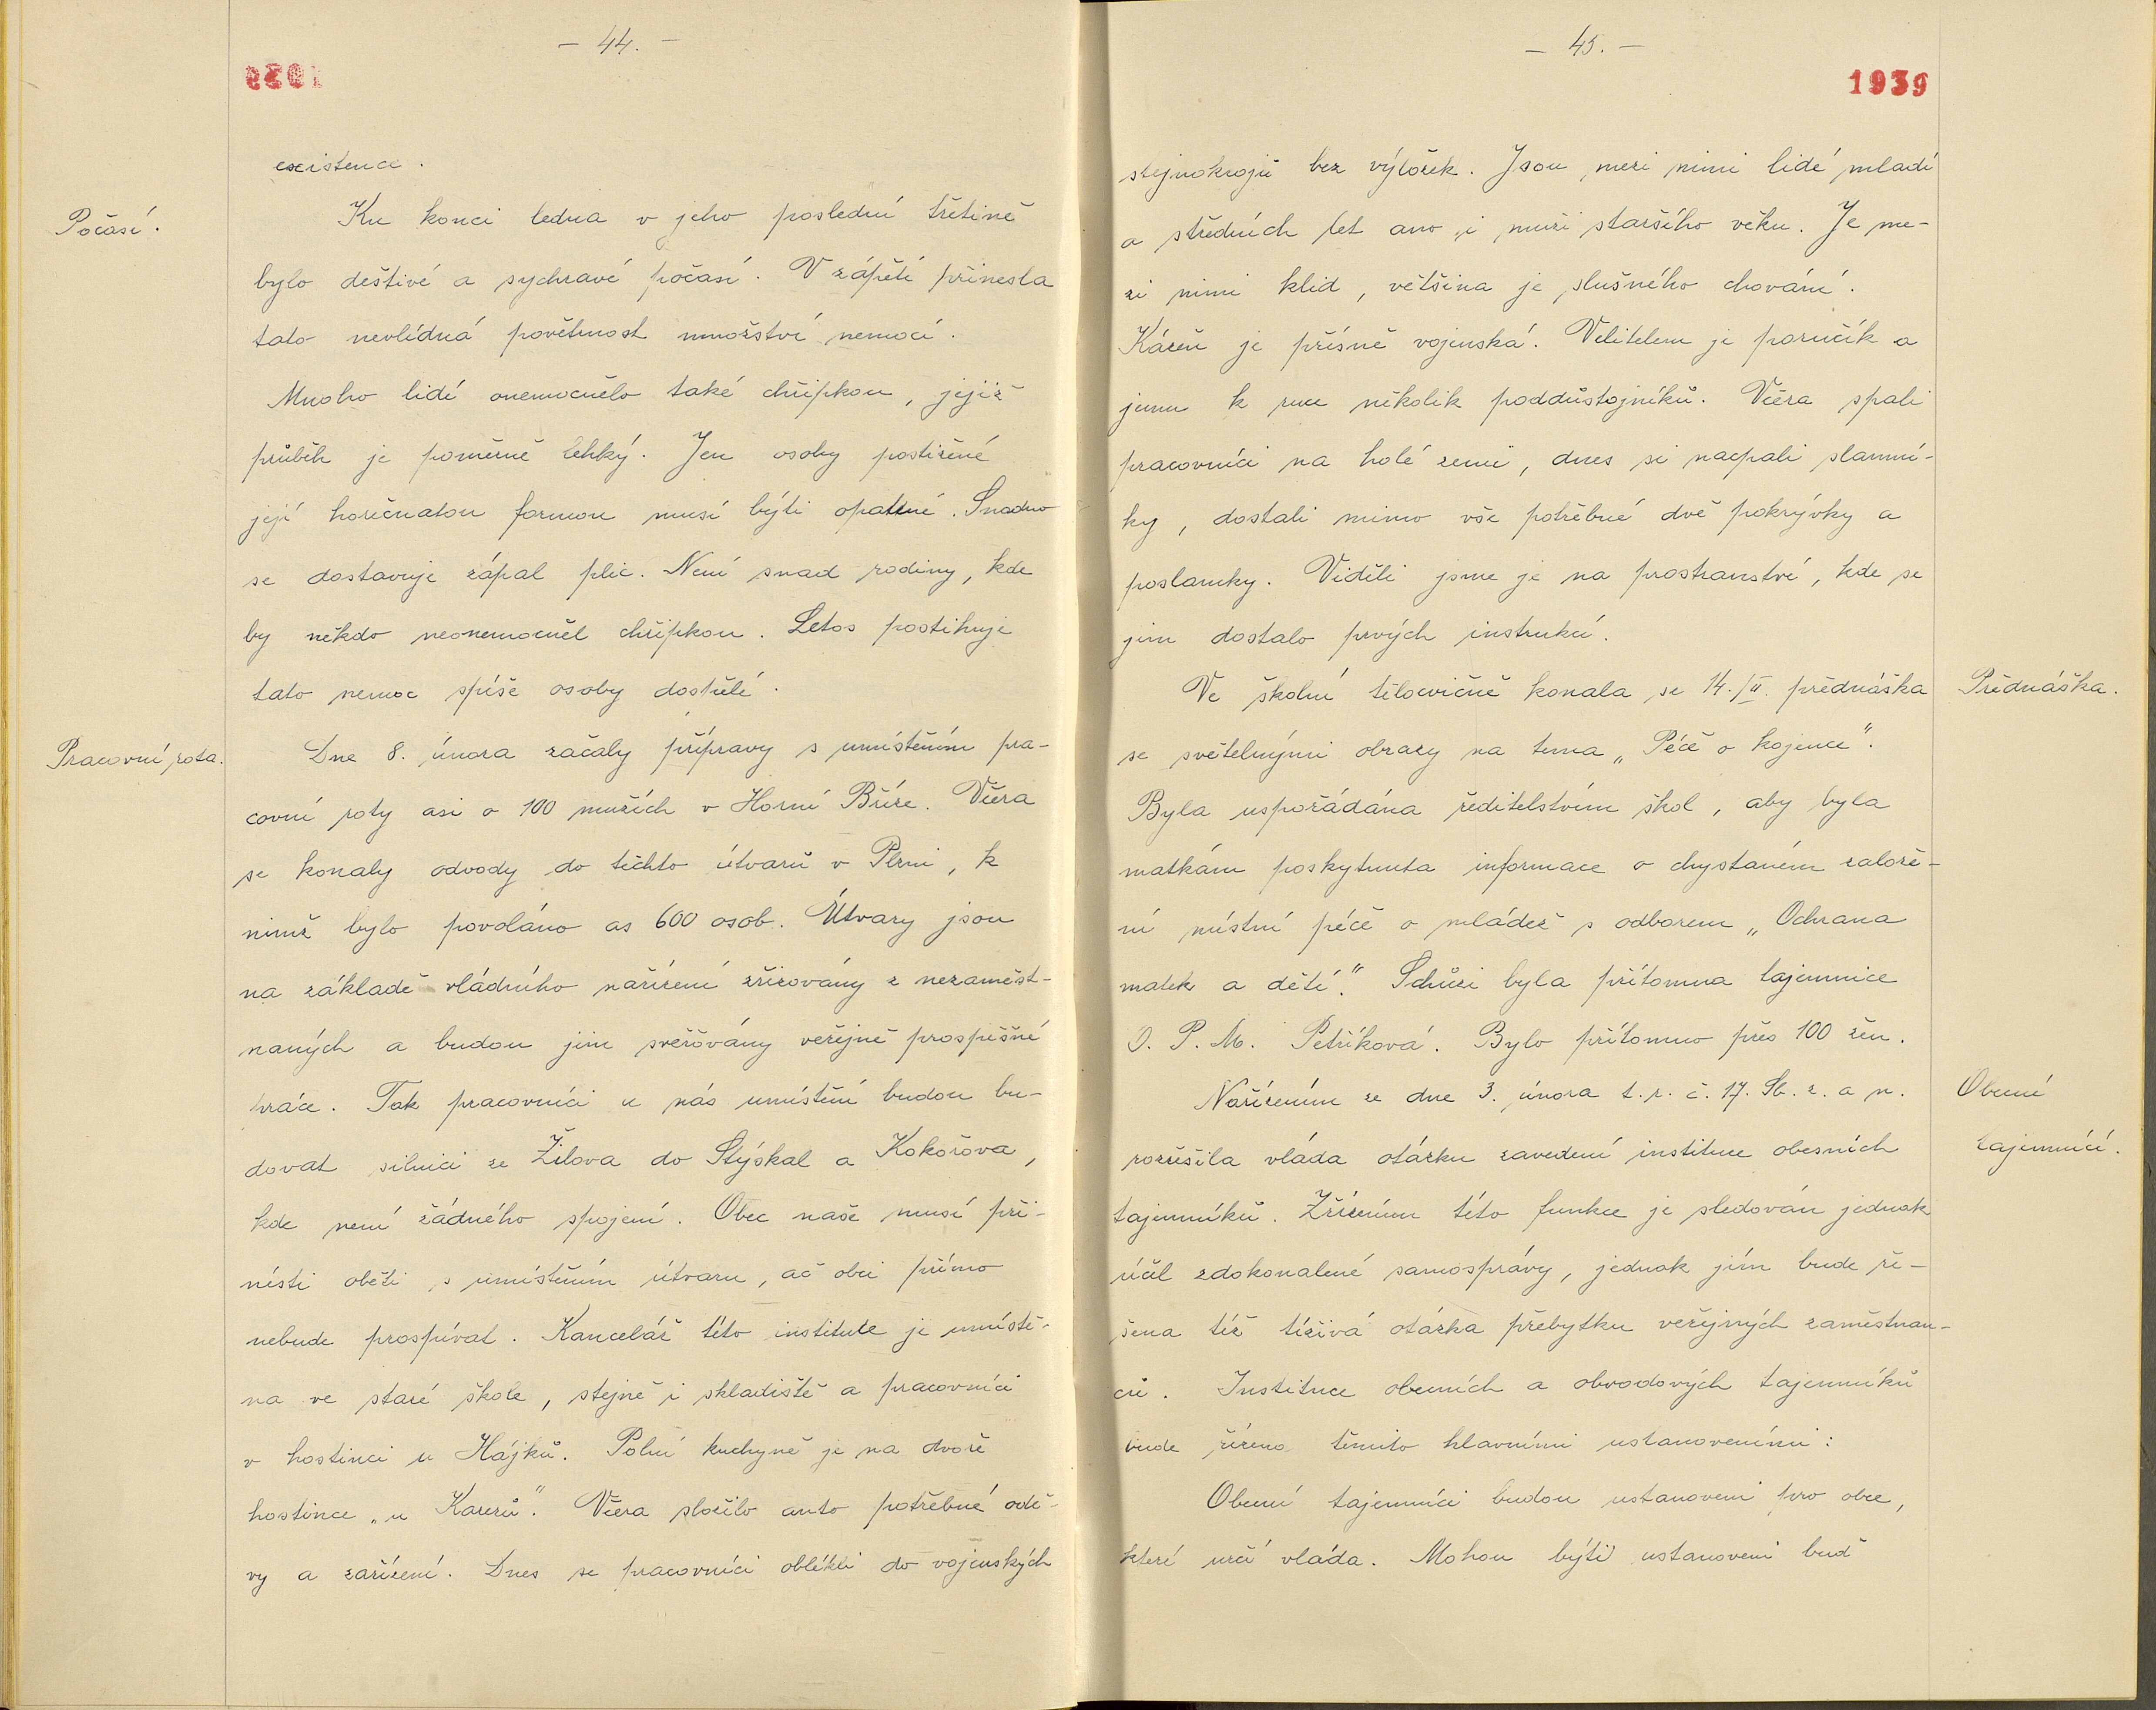 – 44. –
existence.
Počasí.
Ku konci ledna v jeho poslední třetině
bylo deštivé a sychravé počasí. V zápětí přinesla
tato nevlídná povětrnost množství nemocí.
Mnoho lidí onemocnělo také chřipkou, jejíž
průběh je poměrně lehký. Jen osoby postižené
její horečnatou formou musí býti opatrné. Snadno
se dostavuje zápal plic. Není snad rodiny, kde
by někdo neonemocněl chřipkou. Letos postihuje
tato nemoc spíše osoby dospělé.
Pracovní rota.
Dne 8. února začaly přípravy s umístěním pra-
covní roty asi o 100 mužích v Horní Bříze. Včera
se konaly odvody do těchto útvarů v Plzni, k
nimž bylo povoláno as 600 osob. Útvary jsou
na základě vládního nařízení zřizovány z nezaměst-
naných a budou jim svěřovány veřejně prospěšné
práce. Tak pracovníci u nás umístění budou bu-
dovat silnici ze Žilova do Stýskal a Kokořova,
kde není žádného spojení. Obec naše musí při-
nésti oběti s umístěním útvaru, ač obci přímo
nebude prospívat. Kancelář této institute je umístě-
na ve staré škole, stejně i skladiště a pracovníci
v hostinci u Hájků. Polní kuchyně je na dvoře
hostince „u Karerů“. Včera složilo auto potřebné odě-
vy a zařízení. Dnes se pracovníci oblékli do vojenských
– 45. –
1939
stejnokrojů bez výložek. Jsou mezi nimi lidé mladí
a středních let ano i muži staršího věku. Je me-
zi nimi klid, většina je slušného chování.
Kázeň je přísně vojenská. Velitelem je poručík a
jemu k ruce několik poddůstojníků. Včera spali
pracovníci na holé zemi, dnes si nacpali slamní-
ky, dostali mimo vše potřebné dvě pokrývky a
poslamky. Viděli jsme je na prostranství, kde se
jim dostalo prvých instrukcí.
Přednáška.
Ve školní tělocvičně konala se 14./II. přednáška
se světelnými obrazy na tema „Péče o kojence“.
Byla uspořádána ředitelstvím škol, aby byla
matkám poskytnuta informace o chystaném založe-
ní místní péče o mládež s odborem „Ochrana
matek a dětí“. Schůzi byla přítomna tajemnice
O. P. M. Petříková. Bylo přítomno přes 100 žen.
Obecní
tajemníci.
Nařízením ze dne 3. února t. r. č. 17. Sb. z. a n.
rozřešila vláda otázku zavedení instituce obesních
tajemníků. Zřízením této funkce je sledován jednak
účel zdokonalené samosprávy, jednak jím bude ře-
šena též tíživá otázka přebytku veřejných zaměstnan-
ců. Instituce obecních a obvodových tajemníků
bude řízena těmito hlavními ustanoveními:
Obecní tajemníci budou ustanoveni pro obce,
které určí vláda. Mohou býti ustanoveni buď